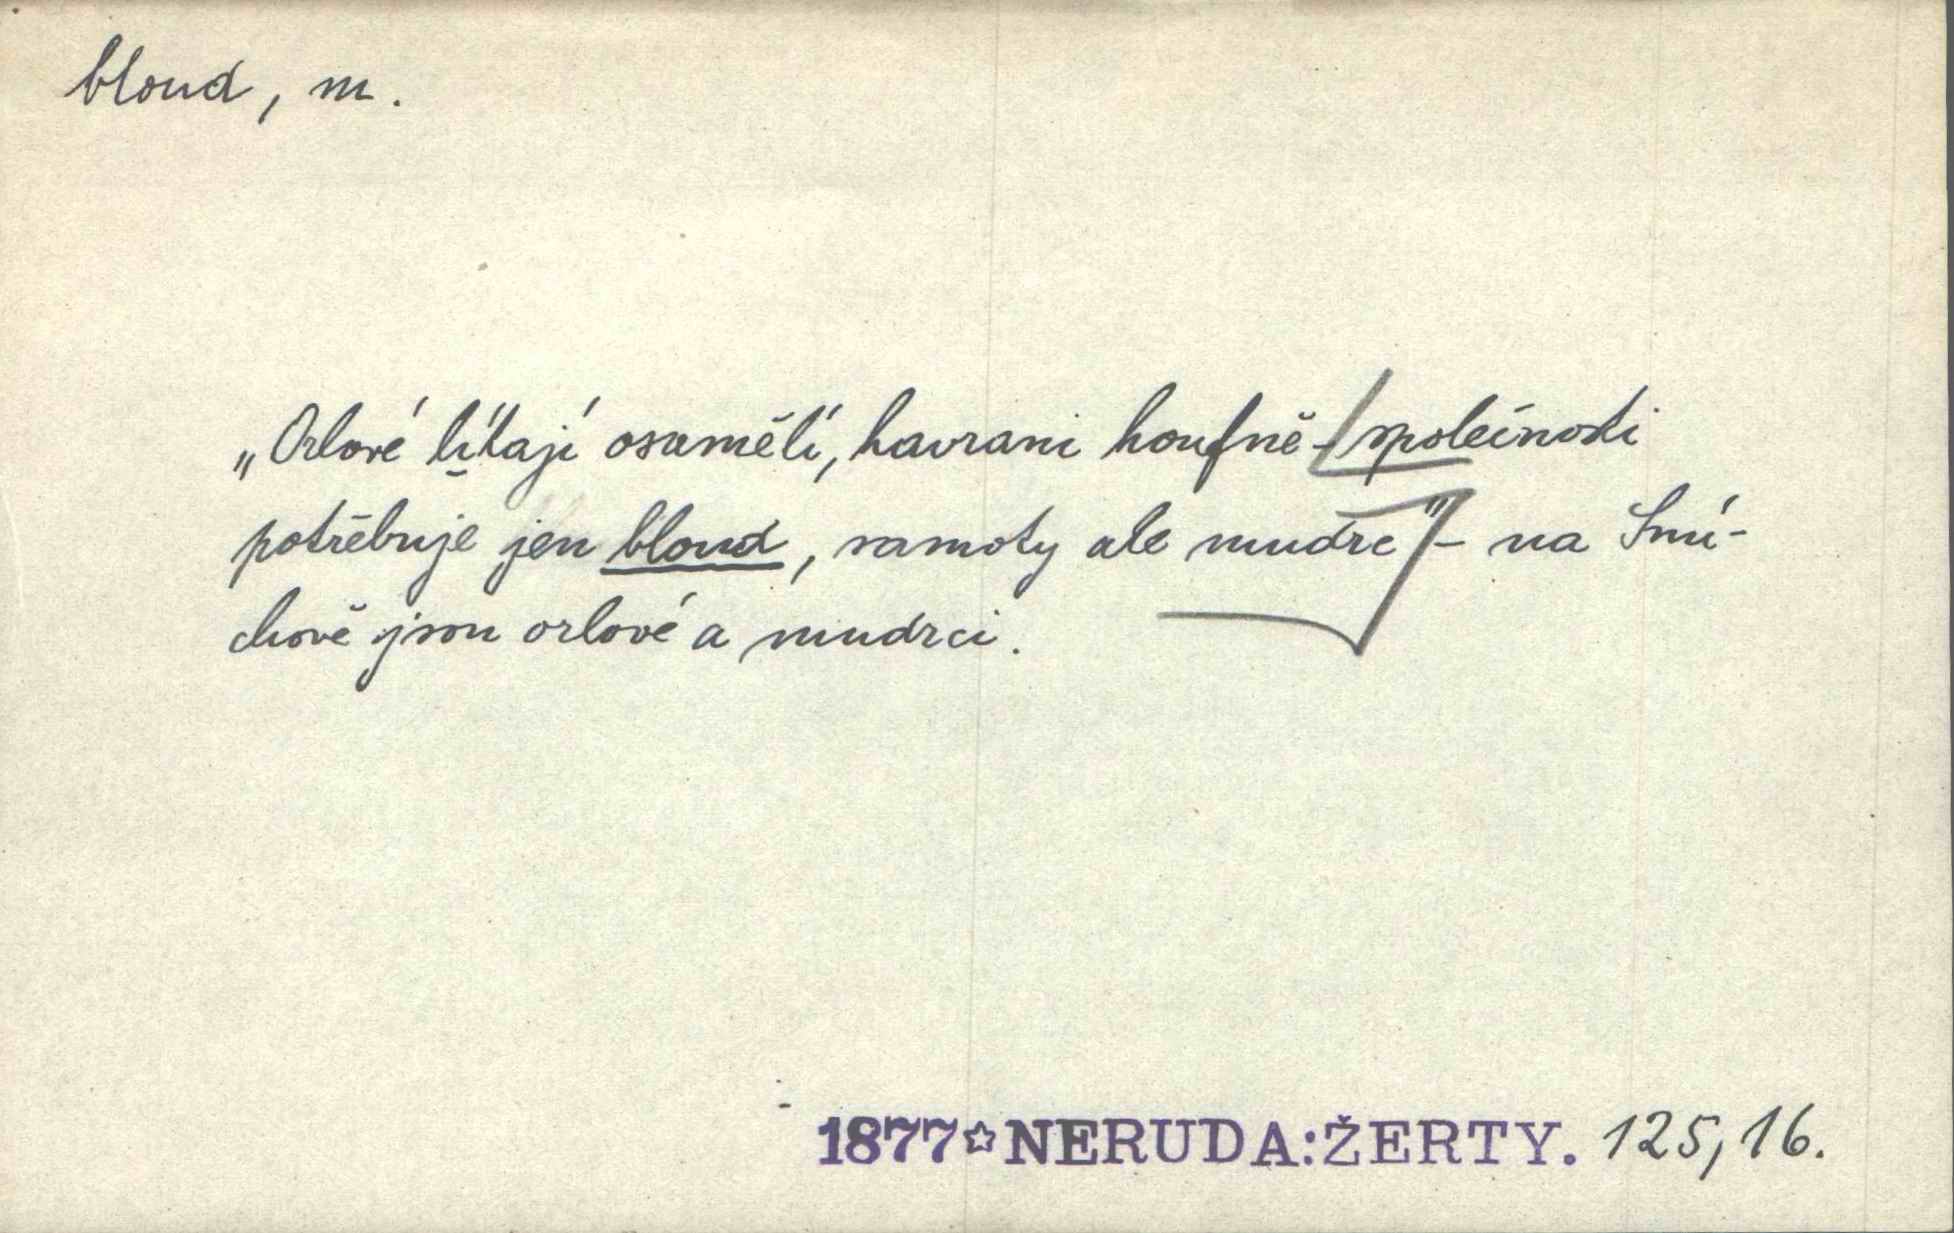 bloud, m.
„Orlové lítají osamělí, havrani houfně - společnosti
potřebuje jen bloud, samoty ale mudrc" - na Smí-
chově jsou orlové a mudrci.
1877☆NERUDA:ŽERTY. 125,16.